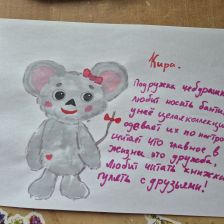 Кира.
Подружка чебурашки
любит носить банти
у неё целая коллекция
одевает их по настро
считает что главное в
жизни это дружба!
Любит читать книжки
гулять с друзьями!